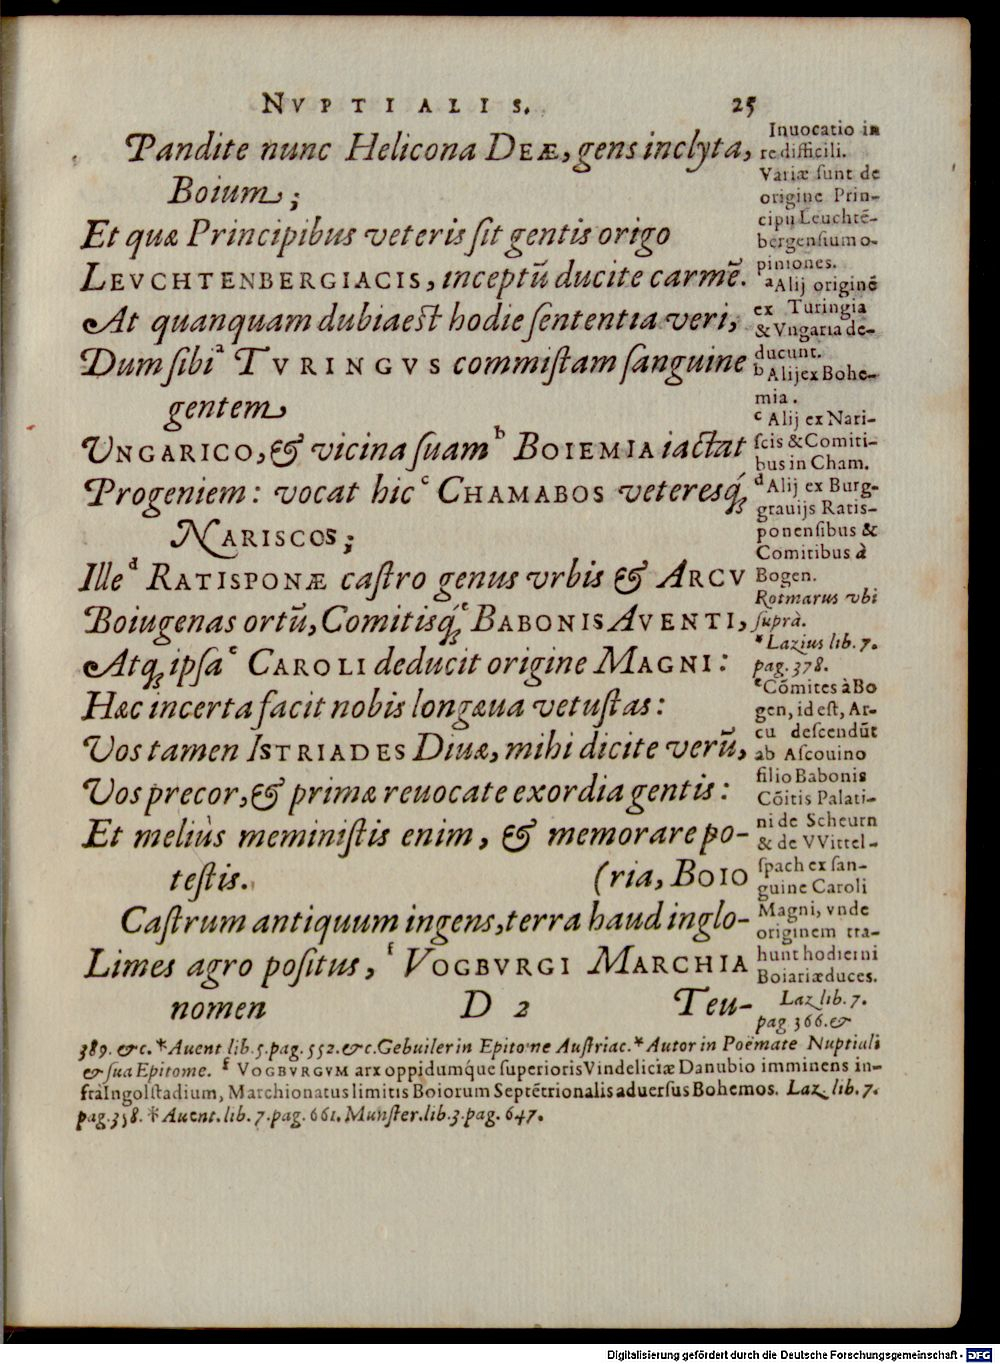 NVPTIALIS. 25
Pandite nunc Helicona DEÆ, gens inclyta,
Boium;
Et quæ Principibus veteris sit gentis origo
LEVCHTENBERGIACIS, inceptū ducite carmē.
At quanquam dubia est hodie sententia veri,
Dum sibi ᵃ TVRINGVS commistam sanguine
gentem
VNGARICO, & vicina suam ᵇ BOIEMIA iactat
Progeniem: vocat hic ᶜ CHAMABOS veteresq́;
NARISCOS;
Ille ᵈ RATISPONÆ castro genus vrbis & ARCV
Boiugenas ortū, Comitisq́; ᵉ BABONIS AVENTI,
Atq; ipsa ᵉ CAROLI deducit origine MAGNI:
Hæc incerta facit nobis longæua vetustas:
Vos tamen ISTRIADES Diuæ, mihi dicite verū,
Vos precor, & primæ reuocate exordia gentis:
Et meliùs meministis enim, & memorare po-
testis. (ria, BOIO
Castrum antiquum ingens, terra haud inglo-
Limes agro positus, ᶠ VOGBVRGI MARCHIA
nomen D 2 Teu-
Inuocatio in
re difficili.
Variæ sunt de
origine Prin-
cipū Leuchtē-
bergensium o-
piniones.
ᵃ Alij originē
ex Turingia
& Vngaria de-
ducunt.
ᵇ Alij ex Bohe-
mia.
ᶜ Alij ex Nari-
scis & Comiti-
bus in Cham.
ᵈ Alij ex Burg-
grauijs Ratis-
ponensibus &
Comitibus à
Bogen.
Rotmarus vbi
suprà.
* Lazius lib. 7.
pag. 378.
ᵉ Cōmites à Bo
gen, id est, Ar-
cu descendūt
ab Ascouino
filio Babonis
Cōitis Palati-
ni de Scheurn
& de VVittel-
spach ex san-
guine Caroli
Magni, vnde
originem tra-
hunt hodierni
Boiariæ duces.
Laz lib. 7.
pag 366. &
389. &c. * Auent lib. 5. pag. 552. &c. Gebuiler in Epitome Austriac. * Autor in Poëmate Nuptiali
& sua Epitome. ᶠ VOGBVRGVM arx oppidumq́ue superioris Vindeliciæ Danubio imminens in-
frà Ingolstadium, Marchionatus limitis Boiorum Septētrionalis aduersus Bohemos. Laz. lib. 7.
pag. 358. * Auent. lib. 7. pag. 661. Munster. lib. 3. pag. 647.
Digitalisierung gefördert durch die Deutsche Forschungsgemeinschaft - DFG